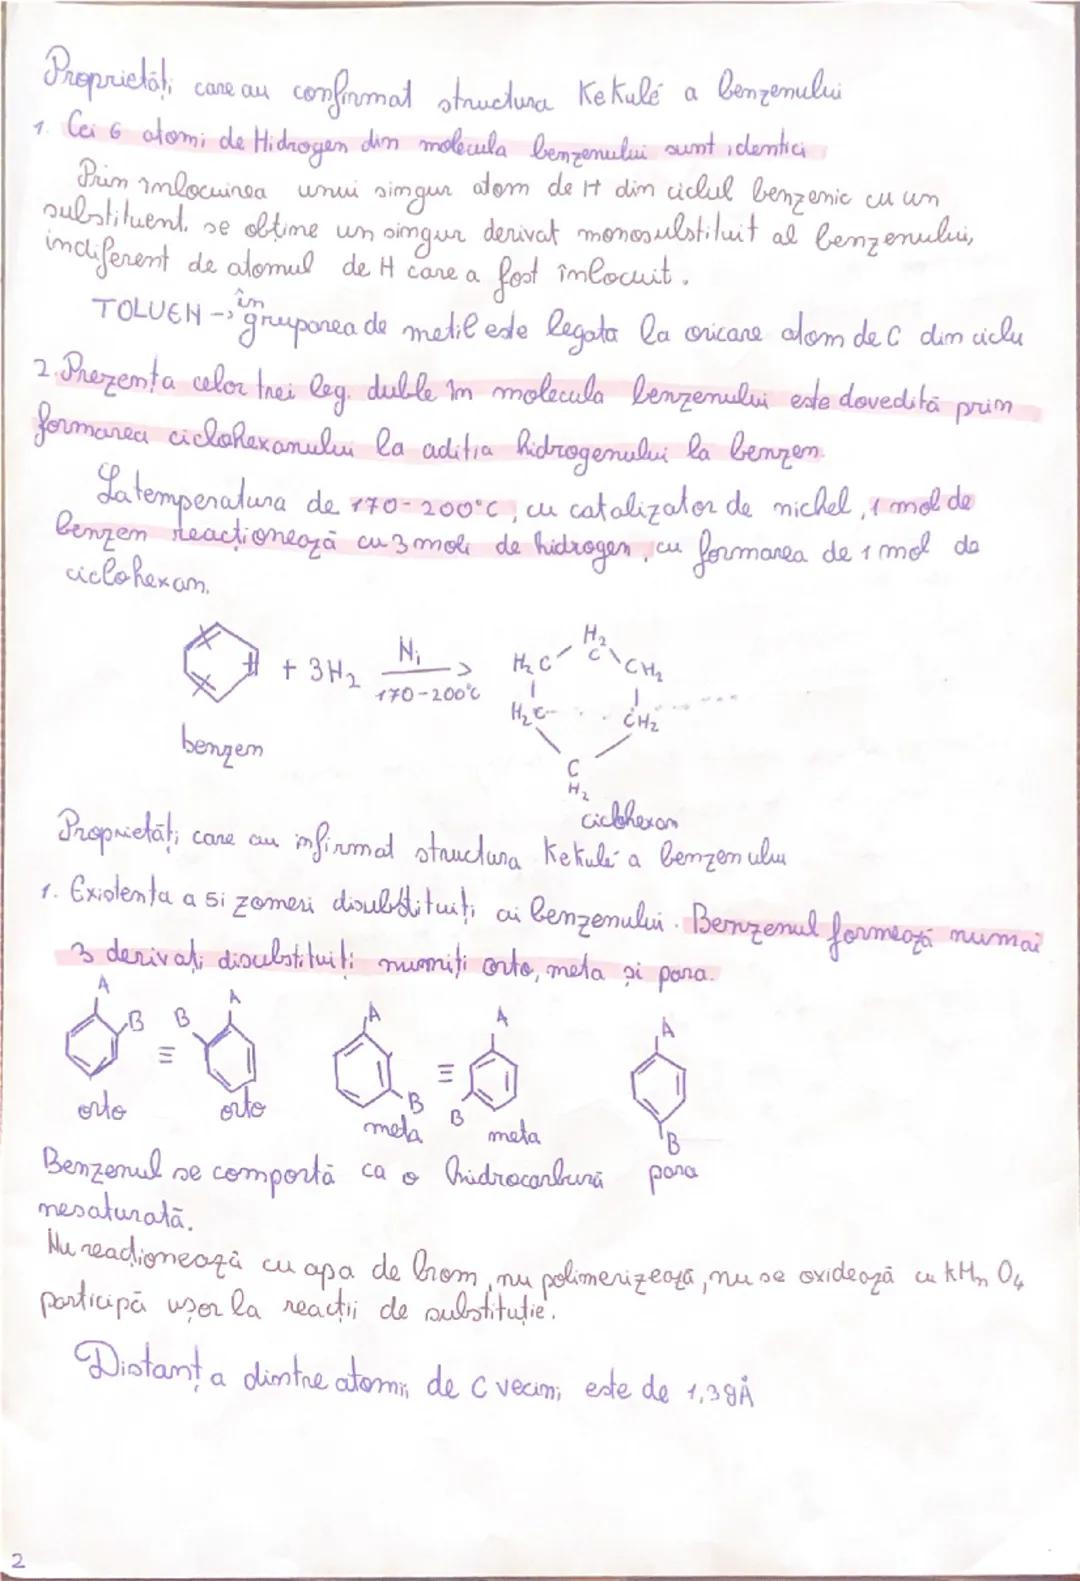 Proprietăți care au confirmat structura Kekulé a benzenului
1. Cei 6 atomi de Hidrogen din molecula benzenului sunt identici
Prin înlocuirea unui singur atom de H din ciclul benzenic cu un
substituent, se obține un singur derivat monosubstituit al benzenului,
indiferent de atomul de H care a fost înlocuit.
TOLUEN → în gruparea de metil este legata la oricare atom de C din ciclu
2. Prezența celor trei leg. duble în molecula benzenului este dovedită prin
formarea ciclohexanului la adiția hidrogenului la benzen.
La temperatura de 170-200°C, cu catalizator de nichel, 1 mol de
benzen reacționează cu 3 moli de hidrogen, cu formarea de 1 mol de
ciclohexan.
+ 3H2 Ni 170-200°C
H2 C
H2C CH2
H2C CH2
C H2
benzen
ciclohexan
Proprietăți care au infirmat structura Kekulé a benzenului
1. Existenta a 5 izomeri disubstituiți ai benzenului. Benzenul formează numai
3 derivați disubstituiți numiți orto, meta și para.
A B ≡ B A A B ≡ A B A B
orto orto meta meta para
Benzenul se comportă ca o hidrocarbură
nesaturată.
Nu reacționează cu apa de brom, nu polimerizează, nu se oxidează cu KMnO4
participă ușor la reacții de substituție.
Distanța dintre atomii de C vecini este de 1,39Å
2